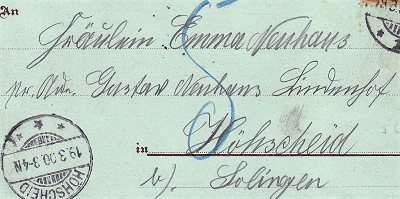 An
Fräulein Emma Neuhaus
pr. Adr. Gustav Neuhaus Lindenhof
in Höhscheid
b/. Solingen
HÖHSCHEID
19.3.00.3-4N
5